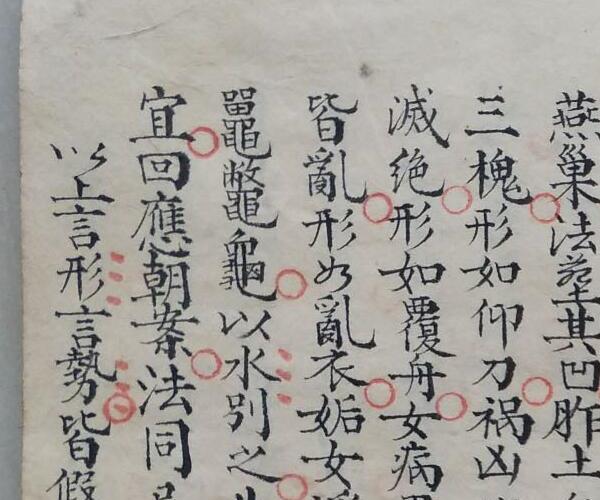 燕巢法塟其凹胙土
三槐形如仰刀禍凶
滅絶形如覆舟女病
皆亂形如亂衣妬女
鼉鼈龜以水別之
宜回應朝案法同
以上言形言勢皆假